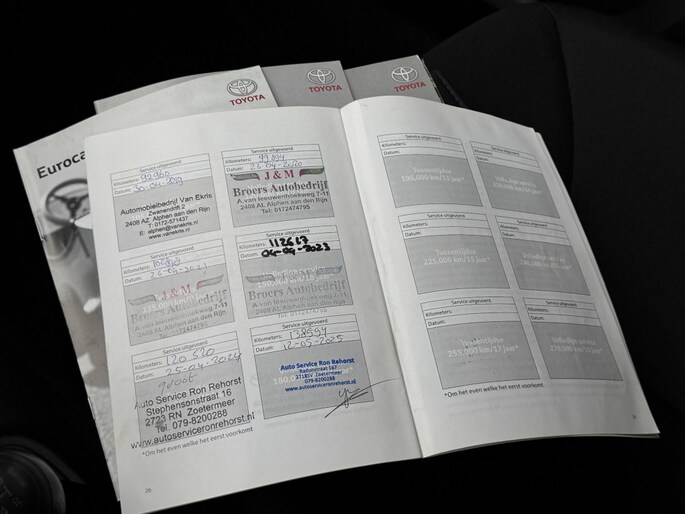 TOYOTA
TOYOTA
TOYOTA
Euroca
Service uitgevoerd
Kilometers: 92960
Datum: 30-04-2019
Automobielbedrijf Van Ekris
Zwenendrift 2
2408 AZ Alphen aan den Rijn
T: 0172-571437
E: alphen@vanekris.nl
www.vanekris.nl
Service uitgevoerd
Kilometers:
Datum: 26-04-2020
J & M
Broers Autobedrijf
A.van leeuwenhoekweg 7-11
2408 AL Alphen aan den Rijn
Tel: 0172474795
Service uitgevoerd
Kilometers:
Datum: 26-04-2021
J & M
Broers Autobedrijf
A.van leeuwenhoekweg 7-11
2408 AL Alphen aan den Rijn
Tel: 0172474795
Service uitgevoerd
Kilometers: 112617
Datum: 04-04-2023
Broers Autobedrijf
A.van leeuwenhoekweg 7-11
2408 AL Alphen aan den Rijn
Tel: 0172474795
Service uitgevoerd
Kilometers: 120 520
Datum: 25-04-2024
groot
Auto Service Ron Rehorst
Stephensonstraat 16
2723 RN Zoetermeer
Tel. 079-8200288
www.autoserviceronrehorst.nl
Service uitgevoerd
Kilometers: 138594
Datum: 12-05-2025
Auto Service Ron Rehorst
Zoetermeer
079-8200288
www.autoserviceronrehorst.nl
*Om het even welke het eerst voorkomt
26
Service uitgevoerd
Kilometers:
Datum:
Tussentijdse
195,000 km/13 jaar*
Service uitgevoerd
Kilometers:
Datum:
Volledige service
Service uitgevoerd
Kilometers:
Datum:
Tussentijdse
225,000 km/15 jaar*
Service uitgevoerd
Kilometers:
Datum:
Volledige service
Service uitgevoerd
Kilometers:
Datum:
Tussentijdse
255,000 km/17 jaar*
Service uitgevoerd
Kilometers:
Datum:
Volledige service
*Om het even welke het eerst voorkomt